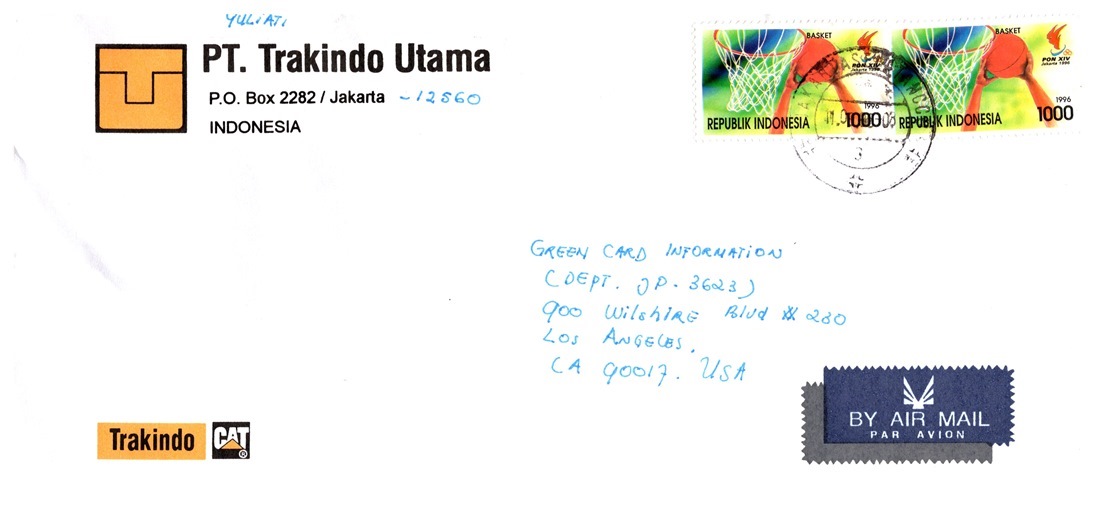 YULIATI
PT. Trakindo Utama
P.O. Box 2282 / Jakarta - 12560
INDONESIA
BASKET
PON XIV
Jakarta 1996
1996
REPUBLIK INDONESIA 1000
BASKET
PON XIV
Jakarta 1996
1996
REPUBLIK INDONESIA 1000
3
GREEN CARD INFORMATION
(DEPT. JP. 3623)
900 Wilshire Blvd # 230
LOS ANGELES,
CA 90017. USA
BY AIR MAIL
PAR AVION
Trakindo CAT